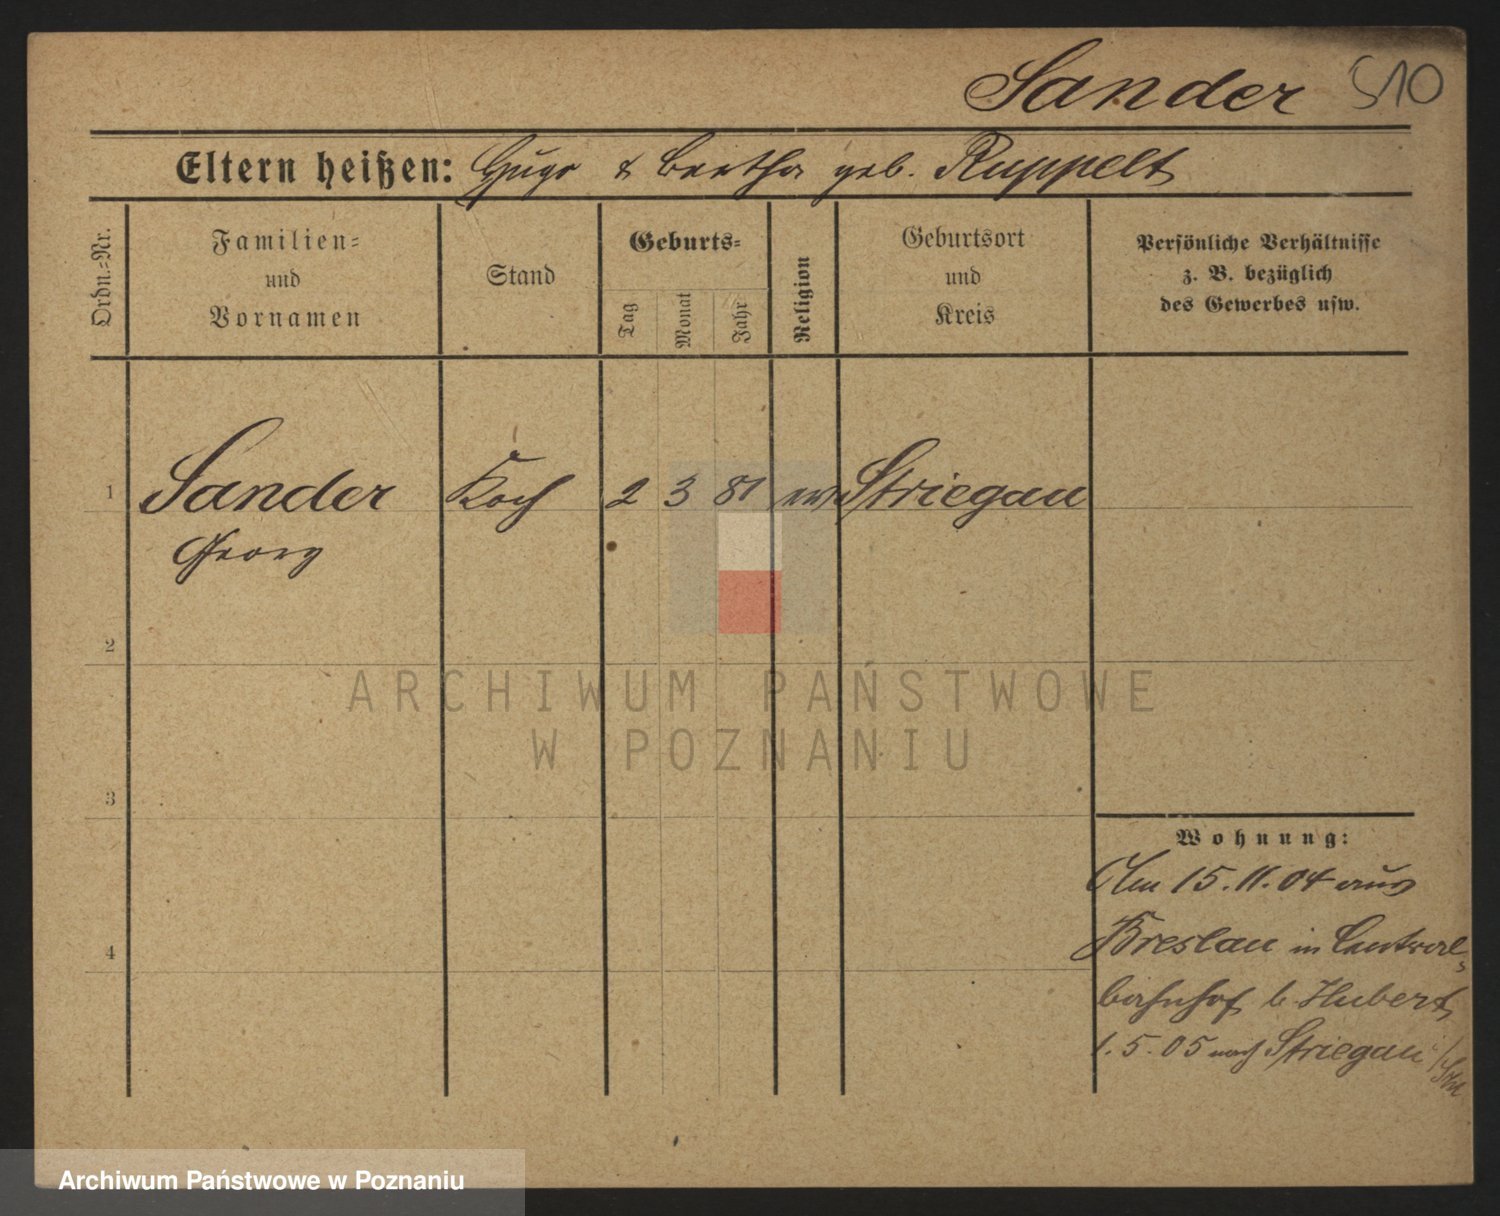 Sander 510
Eltern heißen: Hugo & Bertha geb. Ruppelt
Ordn.-Nr.
Familien-
und
Vornamen
Stand
Geburts-
Tag
Monat
Jahr
Religion
Geburtsort
und
Kreis
Persönliche Verhältnisse
z. B. bezüglich
des Gewerbes usw.
1 Sander Koch 2 3 81 ev Striegau
Georg
2
ARCHIWUM PAŃSTWOWE
W POZNANIU
3
Wohnung:
Am 15.11.04 aus
Breslau in Central-
4
bahnhof b. Hubert
1.5.05 nach Striegau
Archiwum Państwowe w Poznaniu